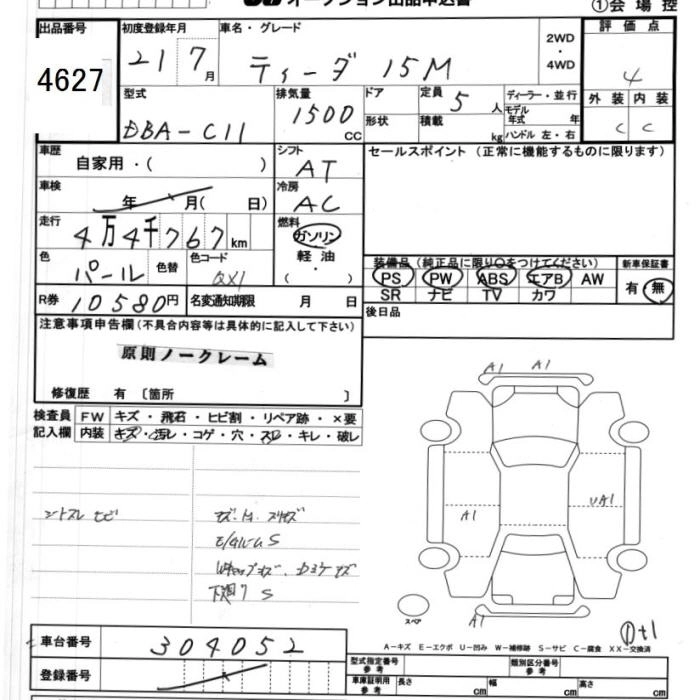 オークション出品申込書
①会場控
出品番号
4627
初度登録年月
21 7月
車名・グレード
ティーダ 15M
2WD
・
4WD
評価点
4
外装 内装
C C
型式
DBA-C11
排気量
1500
CC
ドア
形状
定員 5人
積載 kg
ディーラー・並行
モデル年式 年
ハンドル 左・右
車歴
自家用・( )
シフト
AT
セールスポイント (正常に機能するものに限ります)
車検
年 月( 日)
冷房
AC
走行
4万4千767km
燃料
ガソリン
軽油
( ・ )
色
パール
色替
色コード
QX1
装備品 (純正品に限り○をつけてください)
PS PW ABS エアB AW
SR ナビ TV カワ
新車保証書
有・無
R券 10580円
名変通知期限 月 日
後日品
注意事項申告欄(不具合内容等は具体的に記入して下さい)
原則ノークレーム
修復歴 有 〔箇所 〕
検査員
記入欄
FW キズ・飛石・ヒビ割・リペア跡・×要
内装 キズ・汚レ・コゲ・穴・スレ・キレ・破レ
A1 A1
A1
UA1
A1
スペア
①t1
A-キズ E-エクボ U-凹み W-補修跡 S-サビ C-腐食 XX-交換済
車台番号
304052
登録番号
型式指定番号
参考
類別区分番号
参考
車庫証明用
参考
長さ cm
幅 cm
高さ cm